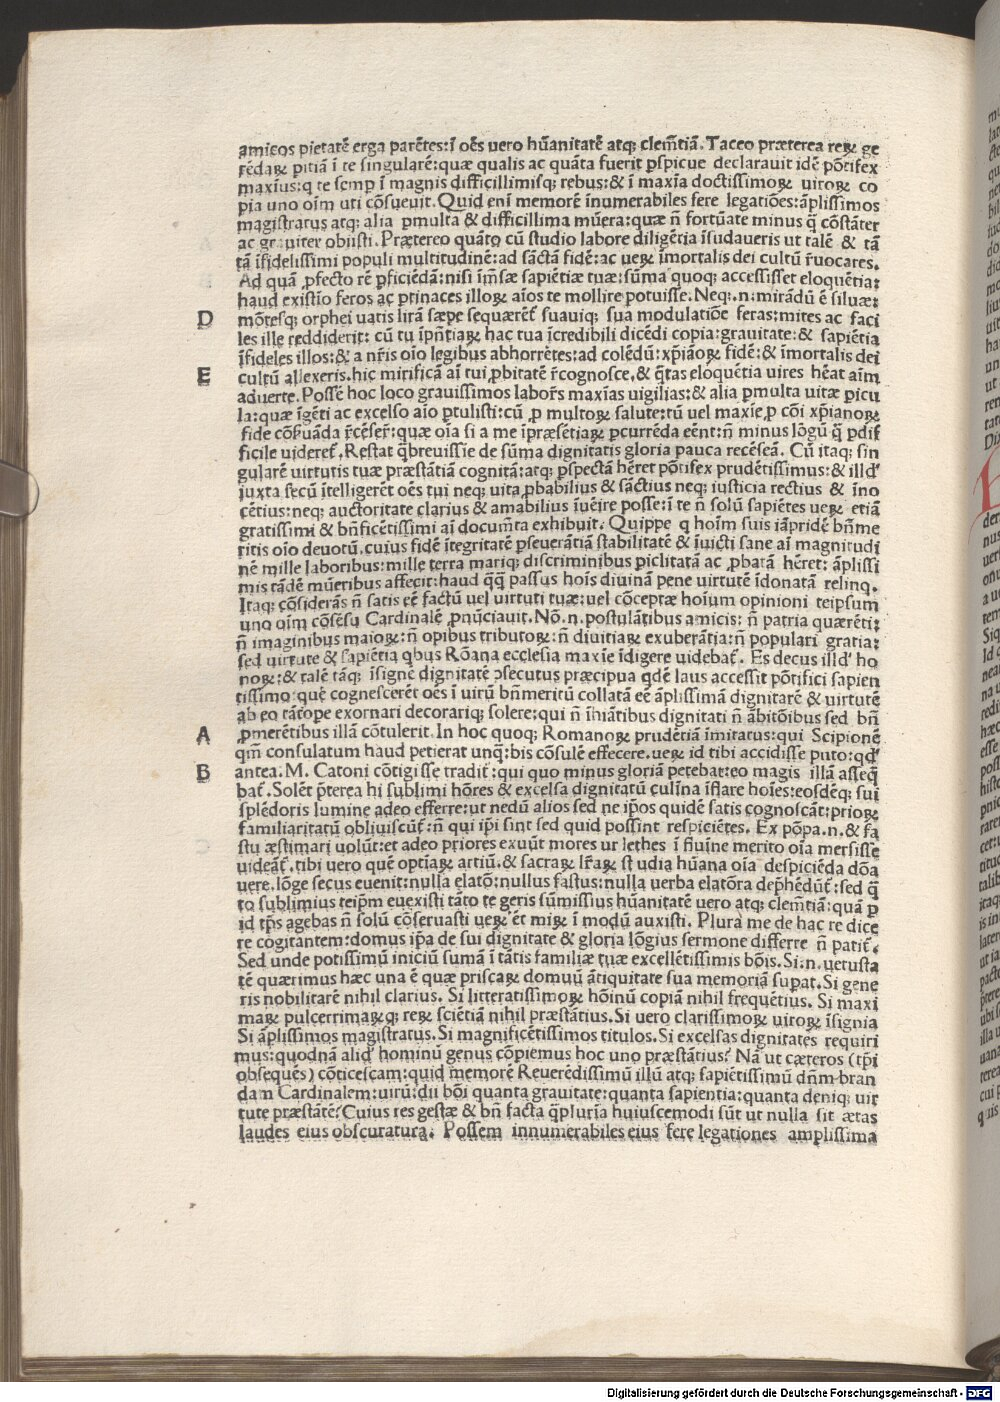 amicos pietatē erga parētes: ī oēs uero hūanitatē atq; clemētiā. Taceo præterea reꝝ ge
rēdaꝝ pitiā ī te singularē: quæ qualis ac quāta fuerit ꝑspicue declarauit idē pōtifex
maxīus: q te semp ī magnis difficillimisq; rebus: & ī maxīa doctissimoꝝ uiroꝝ co
pia uno oīm uti cōsueuit. Quid enī memorē inumerabiles fere legatiōes: āplissimos
magistratus atq; alia ꝑmulta & difficillima mūera: quæ n̄ fortūate minus q̄ cōstāter
ac grauiter obiisti. Prætereo quāto cū studio labore diligētia īsudaueris ut talē & tā
tā īfidelissimi populi multitudinē: ad sāctā fidē: ac ueꝝ īmortalis dei cultū r̄uocares.
Ad quā ꝓfecto rē ꝑficiēdā: nisi īmēsæ sapiētiæ tuæ: sūma quoq; accessisset eloquētia:
haud existīo feros ac ꝑtinaces illoꝝ aīos te mollire potuisse. Neq;.n. mirādū ē siluæ:
D mōtesq; orphei uatis lirā sæpe sequærēt̄ suauiq; sua modulatiōe feras: mites ac faci
les ille reddiderit: cū tu īpn̄tiaꝝ hac tua īcredibili dicēdi copia: grauitate: & sapiētia
īfideles illos: & a nr̄is oīo legibus abhorrētes: ad colēdū: xp̄iāoꝝ fidē: & īmortalis dei
E cultū allexeris. hic mirificā aī tui ꝓbitatē r̄cognosce, & q̄tas eloquētia uires hēat aīm
aduerte. Possē hoc loco grauissimos labor̄s maxīas uigilias: & alia ꝑmulta uitæ ꝑicu
la: quæ īgēti ac excelso aīo ꝑtulisti: cū ꝓ multoꝝ salute: tū uel maxīe ꝓ cōi xp̄ianoꝝ
fide cōẜuāda r̄cēser̄: quæ oīa si a me īpræsētiaꝝ ꝑcurrēda eēnt: n̄ minus lōgū q̄ ꝑdif
ficile uideret̄. Restat q̄breuissīe de sūma dignitatis gloria pauca recēseā. Cū itaq; sin
gularē uirtutis tuæ præstātiā cognitā: atq; ꝑspectā hēret pōtifex prudētissimus: & illd'
iuxta secū ītelligerēt oēs tui neq; uita ꝓbabilius & sāctius neq; iusticia rectius & īno
cētius: neq; auctoritate clarius & amabilius īuēire posse: ī te n̄ solū sapiētes ueꝝ etiā
gratissimi & bn̄ficētissimi aī documēta exhibuit. Quippe q hoīm suis iāpridē bn̄me
ritis oīo deuotū, cuius fidē ītegritatē ꝑseuerātiā stabilitatē & īuicti sane aī magnitudi
nē mille laboribus: mille terra mariq; discriminibus ꝑiclitatā ac ꝓbatā hēret: āplissi
mis tādē mūeribus affecit: haud q̄q̄ passus hoīs diuinā pene uirtutē īdonatā relinq.
Itaq; cōsiderās n̄ satis eē factū uel uirtuti tuæ: uel cōceptæ hoīum opinioni teipsum
uno oīm cōsēsu Cardinalē ꝓnūciauit. Nō.n. postulātibus amicis: n̄ patria quærēti:
n̄ imaginibus maioꝝ: n̄ opibus tributoꝝ: n̄ diuitiaꝝ exuberātia: n̄ populari gratia:
sed uirtute & sapiētia qbus Rōana ecclesia maxīe īdigere uidebat̄. Es decus illd' ho
noꝝ: & talē tāq; īsignē dignitatē ɔsecutus præcipua qdē laus accessit pōtifici sapien
tissimo: quē cognescerēt oēs ī uirū bn̄meritū collatā eē āplissimā dignitatē & uirtutē
ab eo tātope exornari decorariq; solere: qui n̄ īhiātibus dignitati n̄ ābitōibus sed bn̄
A ꝓmerētibus illā cōtulerit. In hoc quoq; Romanoꝝ prudētiā īmitatus: qui Scipionē
qm̄ consulatum haud petierat unq̄: bis cōsulē effecere. ueꝝ id tibi accidisse puto: qd'
B antea. M. Catoni cōtigisse tradit̄: qui quo minus gloriā petebat: eo magis illā asseq̄
bat̄. Solēt p̄terea hi sublimi hōres & excelsa dignitatū culīna īflare hoīes: eosdēq; sui
splēdoris lumine adeo efferre: ut nedū alios sed ne ip̄os quidē satis cognoscāt: prioꝝ
familiaritatū obliuiscūt̄: n̄ qui ip̄i sint sed quid possint respiciētes. Ex pōpa.n. & fa
stu æstimari uolūt: et adeo priores exuūt mores ur lethes ī fluuīne merito oīa mersisse
uideāt̄. tibi uero quē optīaꝝ artiū. & sacraꝝ lr̄aꝝ studia hūana oīa despiciēda dōa
uere. lōge secus euenit: nulla elatō: nullus fastus: nulla uerba elatōra dep̄hēdūt̄: sed q̄
to sublimius teip̄m euexisti tāto te geris sūmissius hūanitatē uero atq; clemētiā: quā ꝑ
id tp̄s agebas n̄ solū cōseruasti ueꝝ ēt miꝝ ī modū auxisti. Plura me de hac re dice
re cogitantem: domus ip̄a de sui dignitate & gloria lōgius sermone differre n̄ patit̄.
Sed unde potissimū iniciū sumā ī tātis familiæ tuæ excellētissimis bōis. Si.n. uetusta
tē quærimus hæc una ē quæ priscaꝝ domuū ātiquitate sua memoriā suꝑat. Si gene
ris nobilitatē nihil clarius. Si litteratissimoꝝ hōinū copiā nihil frequētius. Si maxi
maꝝ pulcerrimaꝝq; reꝝ sciētiā nihil præstātius. Si uero clarissimoꝝ uiroꝝ īsignia
Si āplissimos magistratus. Si magnificētissimos titulos. Si excelsas dignitates requiri
mus: quodnā aliqd' hominū genus cōpiemus hoc uno præstātius? Nā ut cæteros (tp̄i
obsequēs) cōticescam: quid memorē Reuerēdissimū illū atq; sapiētissimū dn̄m bran
dam Cardinalem: uirū: dii bōi quanta grauitate: quanta sapientia: quanta deniq; uir
tute præstātē? Cuius res gestæ & bn̄ facta q̄plurīa huiuscemodi sūt ut nulla sit ætas
laudes eius obscuratura. Possem innumerabiles eius fere legationes amplissima
Digitalisierung gefördert durch die Deutsche Forschungsgemeinschaft - DFG